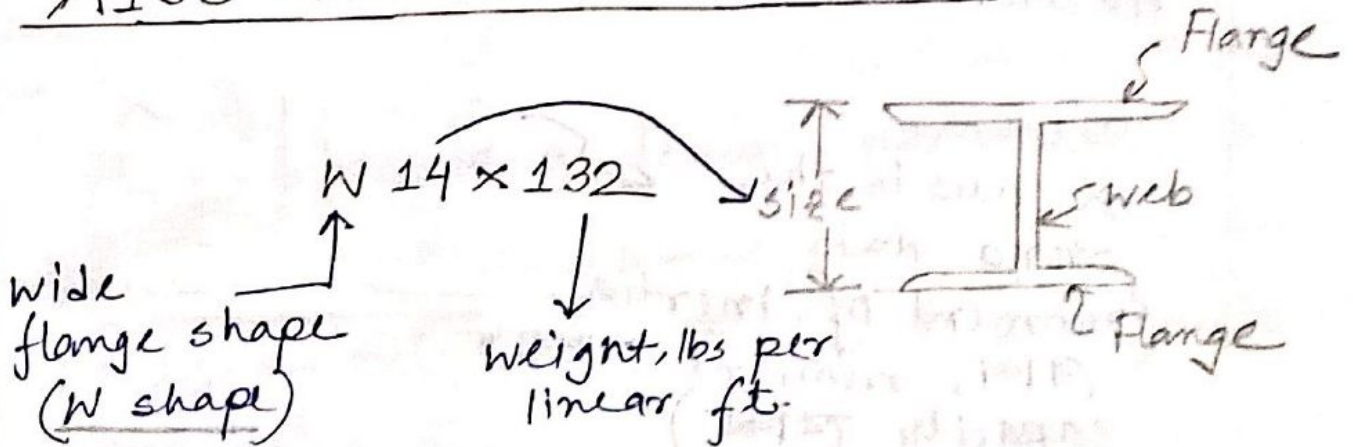 Flange
W 14 x 132
size
web
wide
flange shape
(W shape)
weight, lbs per
linear ft.
Flange